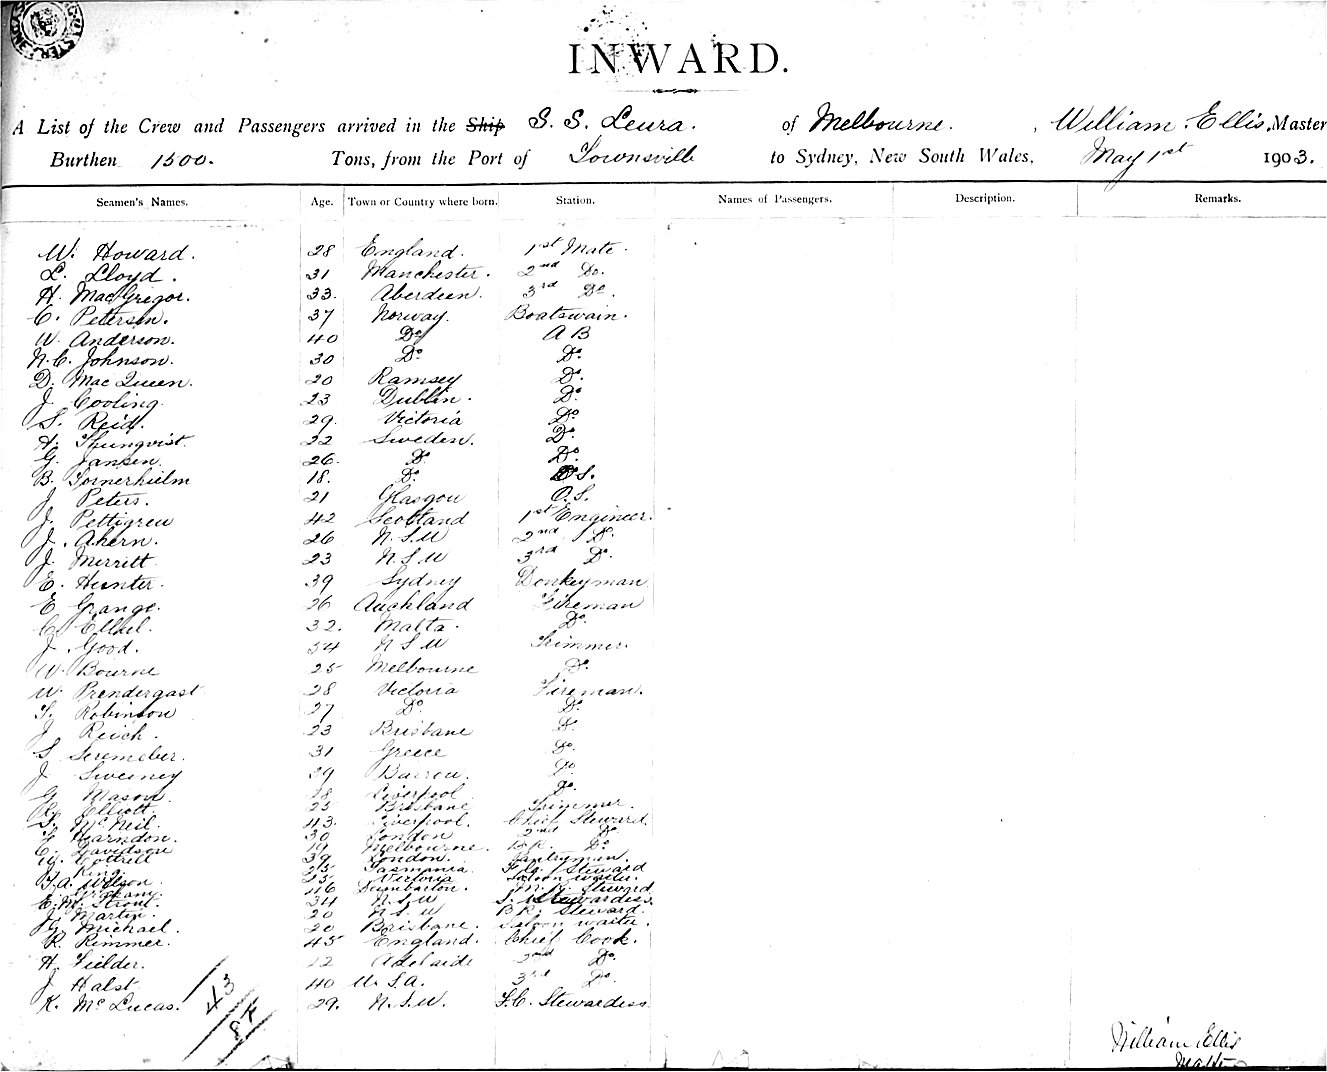 INWARD.
A List of the Crew and Passengers arrived in the Ship S. S. Leura. of Melbourne. , William Ellis, Master
Burthen 1500. Tons, from the Port of Townsville to Sydney, New South Wales, May 1st 1903.
Seamen's Names. Age. Town or Country where born. Station. Names of Passengers. Description. Remarks.
W. Howard. 28 England. 1st Mate
L. Lloyd. 31 Manchester. 2nd Do.
H. MacGregor. 33. Aberdeen. 3rd Do.
C. Petersen. 37 Norway. Boatswain.
W. Anderson. 40 Do A B
N. C. Johnson. 30 Do Do.
D. MacQueen. 20 Ramsey Do.
J. Cooling. 23 Dublin. Do.
S. Reid. 29. Victoria Do
H. Thunqvist. 22 Sweden. Do.
G. Jansen. 26. Do. Do.
B. Tornerhielm 18. Do. O S.
J. Peters. 21 Glasgow O. S.
J. Pettigrew 42 Scotland 1st Engineer.
J. Ahern. 26 N. S. W 2nd Do.
J. Merritt. 23 N. S. W 3rd Do.
E. Hunter. 39 Sydney Donkeyman
E. Grange. 26 Auckland Fireman
C. 32. Malta. Do.
J. Good. 54 N S W Trimmer.
W. Bourne 25 Melbourne Do.
W. Prendergast 28 Victoria Fireman.
S. Robinson 27 Do. Do.
J. Reich. 23 Brisbane Do.
S. 31 Greece Do.
J. Sweeney 39 Barrow. Do
G. Mason. 28 Liverpool Do.
Elliott. 25 Brisbane Trimmer.
McNeil. 43. Liverpool. Chief Steward.
Harndon. 30 London 2nd Do
C. Davidson 19 Melbourne. B.R. Do
W. Cottrell 39 London. Pantryman.
King 25 Tasmania Steward
F. A. Wilson 25 Victoria Saloon waiter.
46 Dumbarton. Steward
E. M. Strout 34 N. S. W S. Stewardess.
J. Martin. 20 N. S. W B R. Steward.
G. Michael. 20 Brisbane. Saloon waiter.
R. Rimmer. 45 England. Chief Cook.
H. Fielder. 22 Adelaide 2nd Do.
J. Halst 40 U. S. A. 3rd Do.
K. McLucas. 29. N. S. W. F.C. Stewardess
43
William Ellis
Master